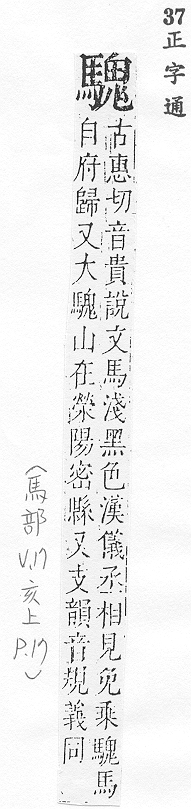 37正字通
騩
古惠切音貴說文馬淺黑色漢儀丞相見免乘騩馬
自府歸又大騩山在滎陽密縣又支韻音規義同
(馬部
V.17
亥上
P.17)